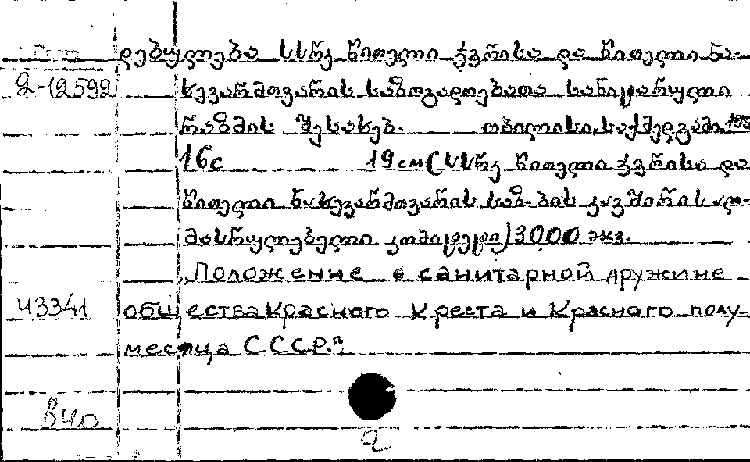 დებულება სსრკ წითელი ჯვრისა და წითელი ნა-
2-12592 ხევარმთვარის საზოგადოებათა სანიტარული
რაზმის შესახებ. თბილისი, საქმედგამი,
16с 19 см (სსრკ წითელი ჯვრისა და
წითელი ნახევარმთვარის საზ-ბის კავშირის აღ-
მასრულებელი კომიტეტი) 3000 экз.
„Положение о санитарной дружине
Ч3341 общества Красного Креста и Красного полу-
месяца СССР."
2